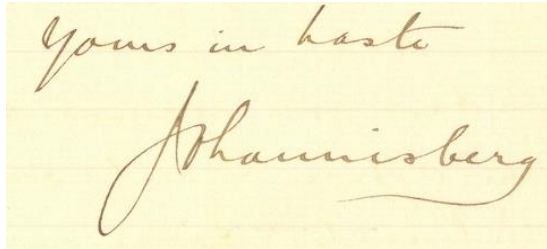 Yours in haste
Johannisberg